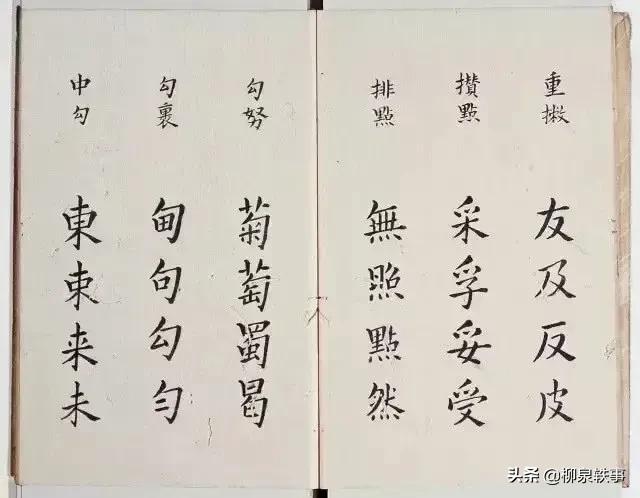 重撇
友及反皮
攢點
采孚妥受
排點
無照點然
勾努
菊萄蜀曷
勾裹
甸句勾匀
中勾
東束来未
头条 @柳泉轶事